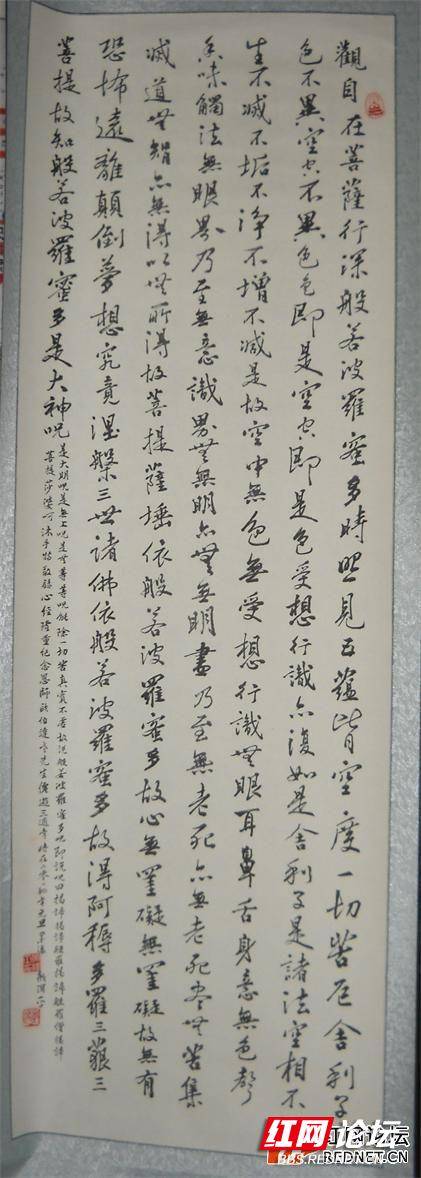 觀自在菩薩行深般若波羅蜜多時照見五蘊皆空度一切苦厄舍利子
色不異空空不異色色即是空空即是色受想行識亦復如是舍利子是諸法空相不
生不滅不垢不淨不增不減是故空中無色無受想行識無眼耳鼻舌身意無色聲
香味觸法無眼界乃至無意識界無無明亦無無明盡乃至無老死亦無老死盡無苦集
滅道無智亦無得以無所得故菩提薩埵依般若波羅蜜多故心無罣礙無罣礙故無有
恐怖遠離顛倒夢想究竟涅槃三世諸佛依般若波羅蜜多故得阿耨多羅三藐三
菩提故知般若波羅蜜多是大神咒
是大明咒是無上咒是無等等咒能除一切苦真實不虛故說般若波羅蜜多咒即說咒曰揭諦揭諦般羅揭諦般羅僧揭諦
菩提莎婆訶沐手恭敬錄心經隆重紀念恩師先生仙遊三週年時在年元旦
红网论坛
REDNET.CN
BBS.REDNET.CN